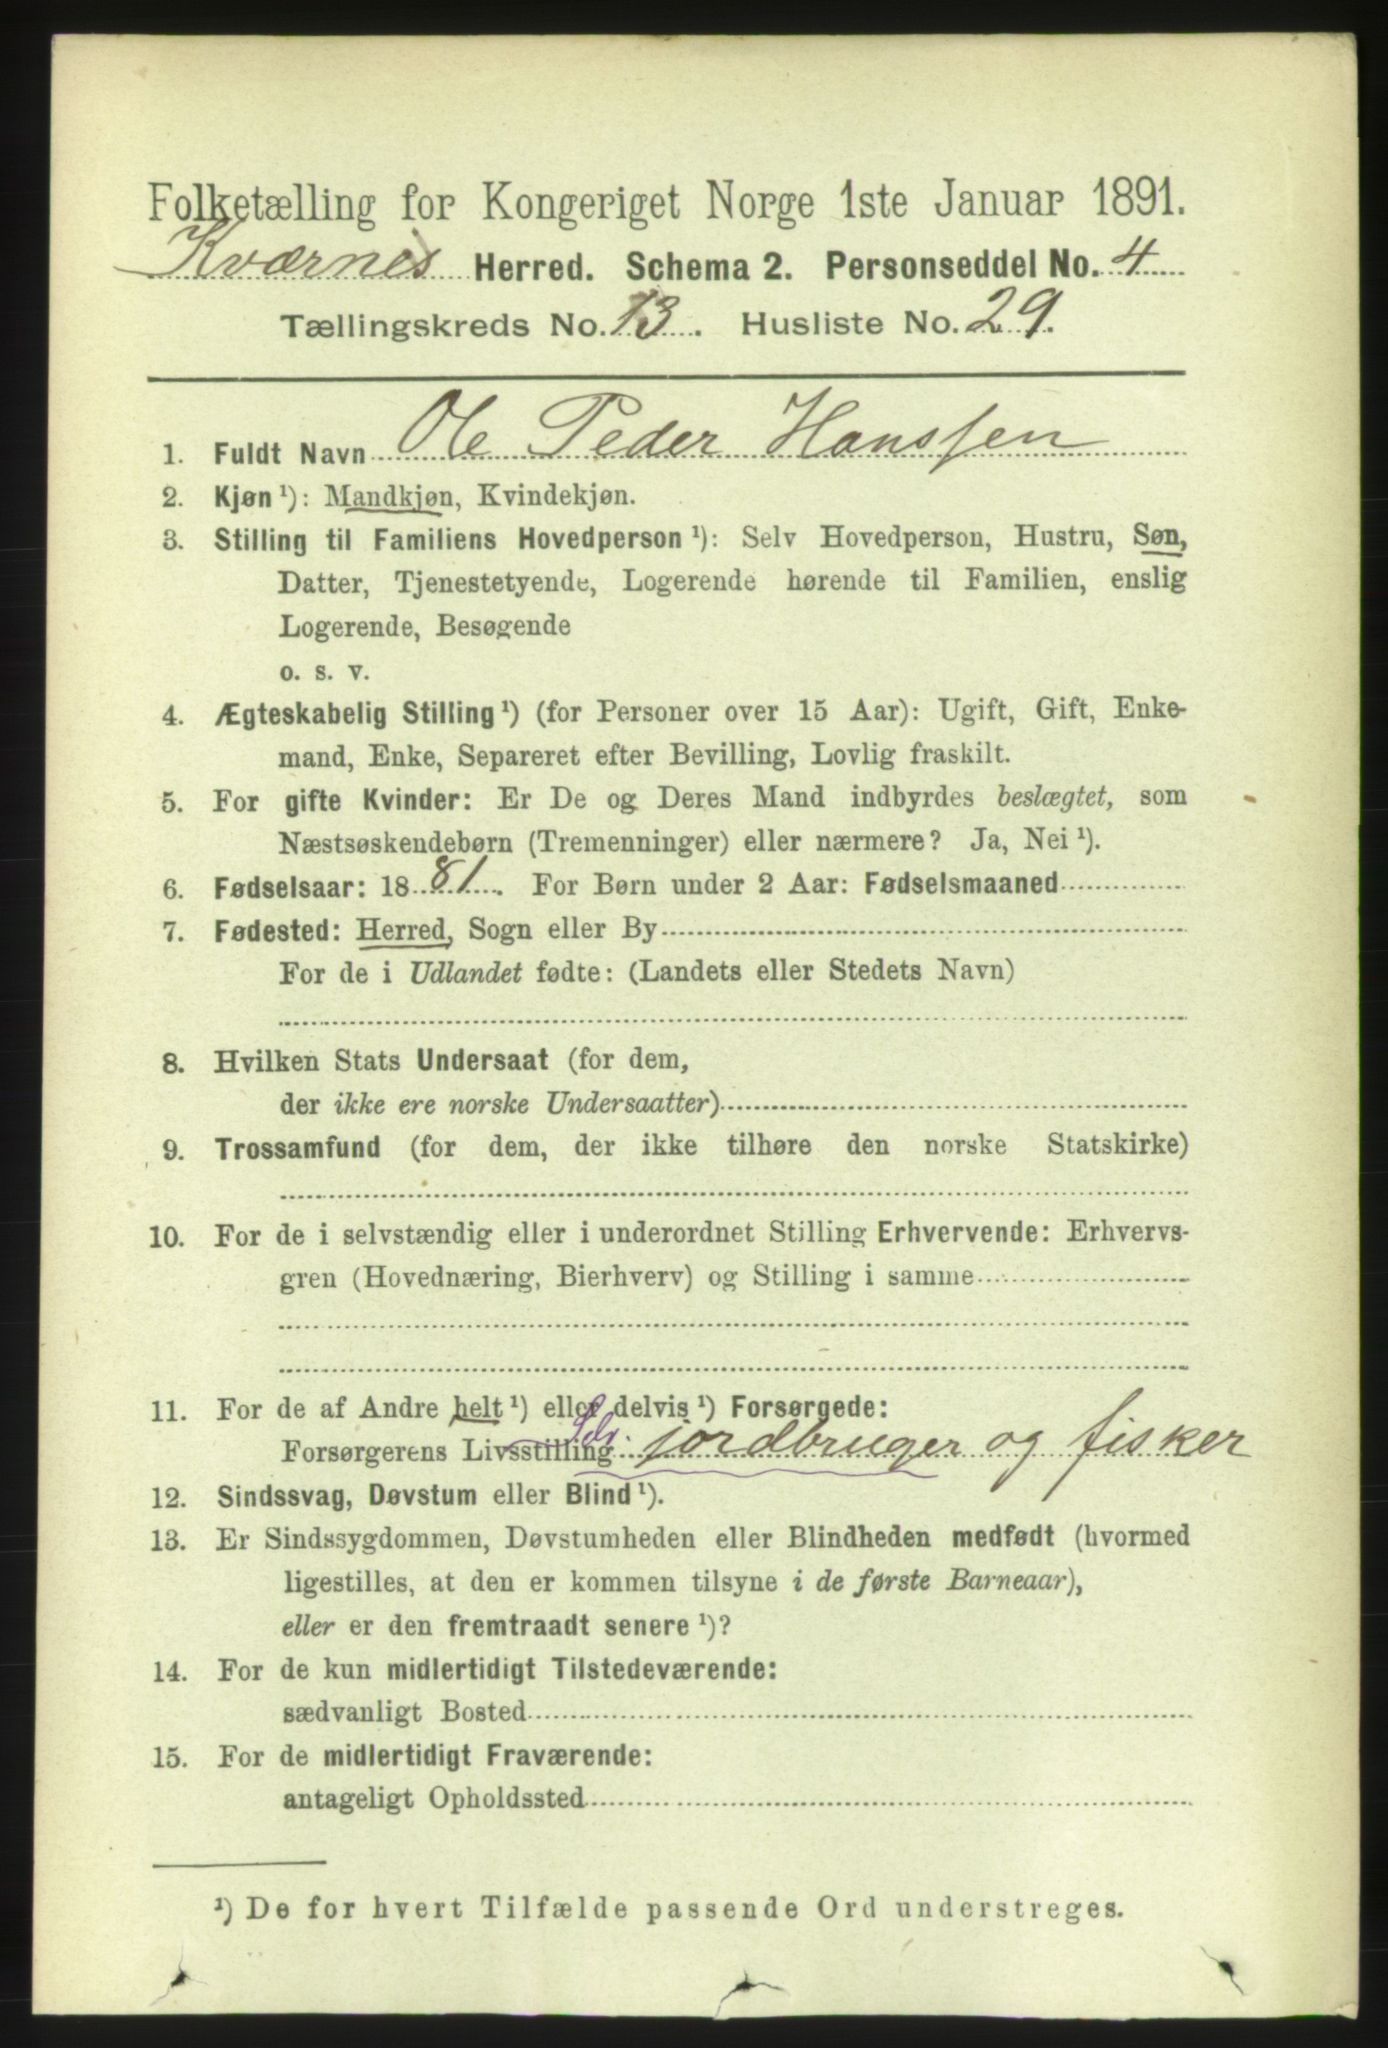 Folketælling for Kongeriget Norge 1ste Januar 1891.
Kværnes Herred. Schema 2. Personseddel No. 4
Tællingskreds No. 13. Husliste No. 29.
1. Fuldt Navn Ole Peder Hanssen
2. Kjøn ¹): Mandkjøn, Kvindekjøn.
3. Stilling til Familiens Hovedperson ¹): Selv Hovedperson, Hustru, Søn,
Datter, Tjenestetyende, Logerende hørende til Familien, enslig
Logerende, Besøgende
o. s. v.
4. Ægteskabelig Stilling ¹) (for Personer over 15 Aar): Ugift, Gift, Enke-
mand, Enke, Separeret efter Bevilling, Lovlig fraskilt.
5. For gifte Kvinder: Er De og Deres Mand indbyrdes beslægtet, som
Næstsøskendebørn (Tremenninger) eller nærmere? Ja, Nei ¹).
6. Fødselsaar: 1881. For Børn under 2 Aar: Fødselsmaaned
7. Fødested: Herred, Sogn eller By
For de i Udlandet fødte: (Landets eller Stedets Navn)
8. Hvilken Stats Undersaat (for dem,
der ikke ere norske Undersaatter)
9. Trossamfund (for dem, der ikke tilhøre den norske Statskirke)
10. For de i selvstændig eller i underordnet Stilling Erhvervende: Erhvervs-
gren (Hovednæring, Bierhverv) og Stilling i samme
11. For de af Andre helt ¹) eller delvis ¹) Forsørgede:
Forsørgerens Livsstilling jordbruger og fisker
12. Sindssvag, Døvstum eller Blind ¹).
13. Er Sindssygdommen, Døvstumheden eller Blindheden medfødt (hvormed
ligestilles, at den er kommen tilsyne i de første Barneaar),
eller er den fremtraadt senere ¹)?
14. For de kun midlertidigt Tilstedeværende:
sædvanligt Bosted
15. For de midlertidigt Fraværende:
antageligt Opholdssted
¹) De for hvert Tilfælde passende Ord understreges.